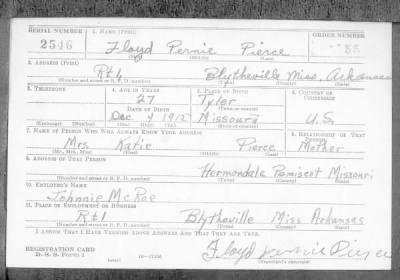 SERIAL NUMBER 1. NAME (Print) ORDER NUMBER
2516 Floyd Pernie Pierce
(First) (Middle) (Last)
2. ADDRESS (Print)
Rt 4 Blytheville Miss. Arkansas
(Number and street or R. F. D. number) (Town) (County) (State)
3. TELEPHONE 4. AGE IN YEARS 5. PLACE OF BIRTH 6. COUNTRY OF CITIZENSHIP
27 Tyler
DATE OF BIRTH (Town or county)
Dec 4 1912 Missouri U.S.
(Exchange) (Number) (Mo.) (Day) (Yr.) (State or country)
7. NAME OF PERSON WHO WILL ALWAYS KNOW YOUR ADDRESS 8. RELATIONSHIP OF THAT PERSON
Mrs. Katie Pierce Mother
(Mr., Mrs., Miss) (First) (Middle) (Last)
9. ADDRESS OF THAT PERSON
Hermondale Pemiscot Missouri
(Number and street or R. F. D. number) (Town) (County) (State)
10. EMPLOYER'S NAME
Johnnie McRoe
11. PLACE OF EMPLOYMENT OR BUSINESS
Rt 1 Blytheville Miss Arkansas
(Number and street or R. F. D. number) (Town) (County) (State)
I AFFIRM THAT I HAVE VERIFIED ABOVE ANSWERS AND THAT THEY ARE TRUE.
REGISTRATION CARD
D. S. S. Form 1 (over) Floyd Pernie Pierce
(Registrant's signature)